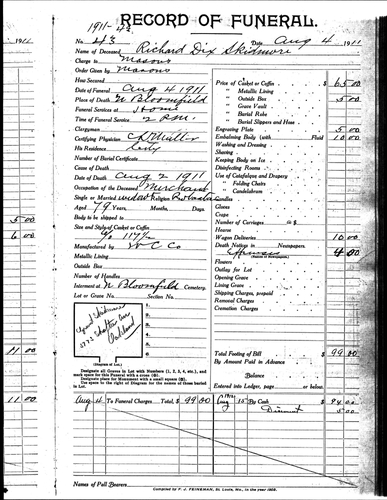 1911-43
RECORD OF FUNERAL.
No. 43 Date Aug 4 1911
Name of Deceased Richard Dix Skidmore
Charge to Masons
Order Given by Masons
How Secured
Date of Funeral Aug 4 1911
Place of Death N Bloomfield
Funeral Services at Home
Time of Funeral Service 2 P.M.
Clergyman
Certifying Physician
His Residence City
Number of Burial Certificate
Cause of Death
Date of Death Aug 2 1911
Occupation of the Deceased Merchant
Single or Married Religion
Aged 79 Years, Months, Days.
Body to be shipped to
Size and Style of Casket or Coffin
6/3 117 1/2
Manufactured by W C Co
Metallic Lining
Outside Box
Number of Handles
Interment at N Bloomfield Cemetery.
Lot or Grave No. Section No.
1.
2.
3.
4.
5.
6.
Skidmore
5772 Shafter Ave
Oakland
(Diagram of Lot.)
Designate all Graves in Lot with Numbers (1, 2, 3, 4, etc.), and mark space for this Funeral with a cross (✠).
Designate place for Monument with a small square (□).
Use space to the right of Diagram for the names of those buried in Lot.
Aug 4 To Funeral Charges Total, $ 99 00
Names of Pall Bearers
Price of Casket or Coffin $ 65 00
" Metallic Lining
" Outside Box 5 00
" Grave Vault
" Burial Robe
" Burial Slippers and Hose
Engraving Plate 5 00
Embalming Body (with Fluid 10 00
Washing and Dressing
Shaving
Keeping Body on Ice
Disinfecting Rooms
Use of Catafalque and Drapery
" Folding Chairs
" Candelabrum
Candles
Gloves
Crape
Number of Carriages @ $
Hearse
Wagon Deliveries 10 00
Death Notices in Newspapers.
(Names of Newspapers.) 4 00
Flowers
Outlay for Lot
Opening Grave
Lining Grave
Shipping Charges, prepaid
Removal Charges
Cremation Charges
Total Footing of Bill $ 99 00
By Amount Paid in Advance
Balance
Entered into Ledger, page or below.
1912
Aug 15 By Cash $ 94 00
Discount 5 00
Compiled by F. J. FEINEMAN, St. Louis, Mo., in the year 1902.
1911
5 00
6 00
11 00
11 00